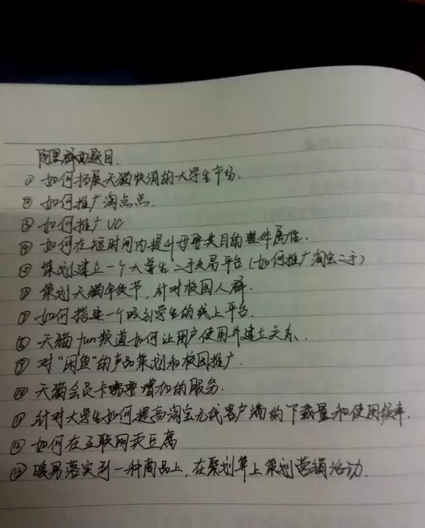 阿里群面题目.
① 如何拓展天猫快消的大学生市场.
② 如何推广淘点点
③ 如何推广UC
④ 如何在短时间内提升母婴类目的整体属性.
⑤ 策划建立一个大学生二手交易平台(如何推广淘宝二手)
⑥ 策划天猫年货节,针对校园人群.
⑦ 如何搭建一个吸引学生的线上平台.
⑧ 天猫fun频道如何让用户使用并建立关系.
⑨ 对"闲鱼"的产品策划和校园推广.
⑩ 天猫会员卡增加的服务.
⑪ 针对大学生如何提高淘宝无线客户端的下载量和使用频率.
⑫ 如何在互联网卖豆腐
⑬ 暖男落实到一种商品上,在聚划算上策划营销活动.